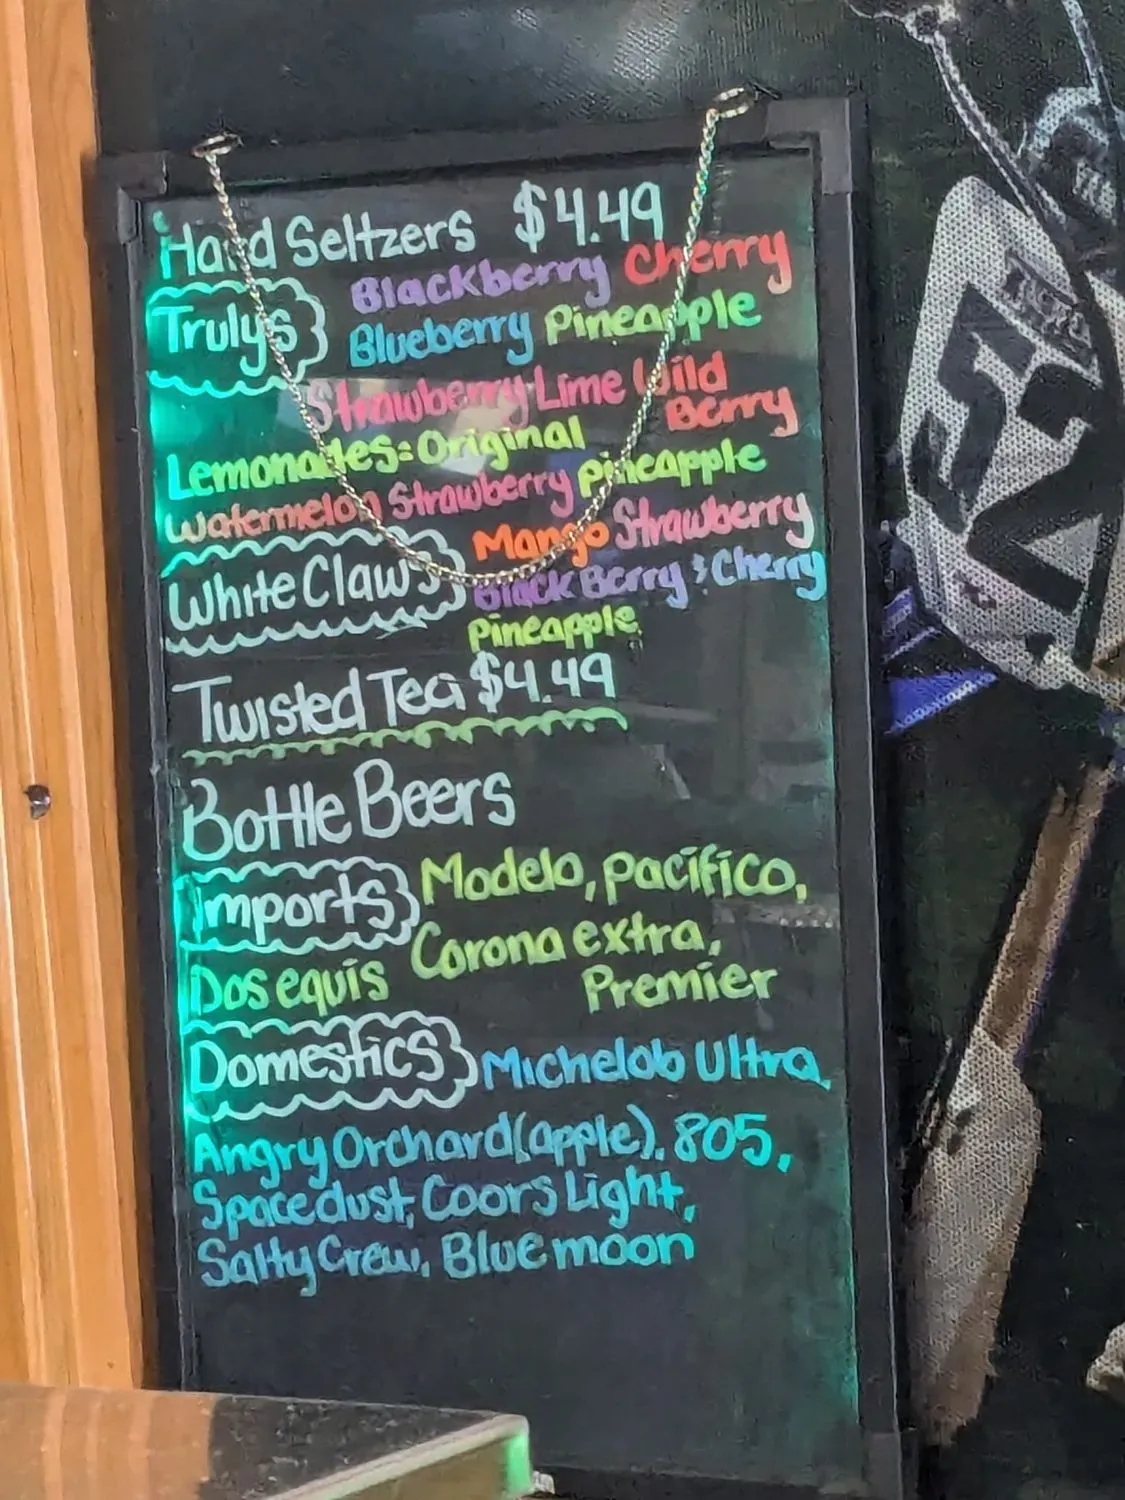 Hard Seltzers $4.49
Trulys Blackberry Cherry
Blueberry Pineapple
Strawberry Lime Wild
Berry
Lemonades: Original
Watermelon Strawberry pineapple
White Claws Mango Strawberry
Black Berry & Cherry
Pineapple
Twisted Tea $4.49
Bottle Beers
Imports Modelo, pacífico,
Dos equis Corona extra,
Premier
Domestics Michelob Ultra,
Angry Orchard (apple), 805,
Spacedust, Coors Light,
Salty Crew, Blue moon